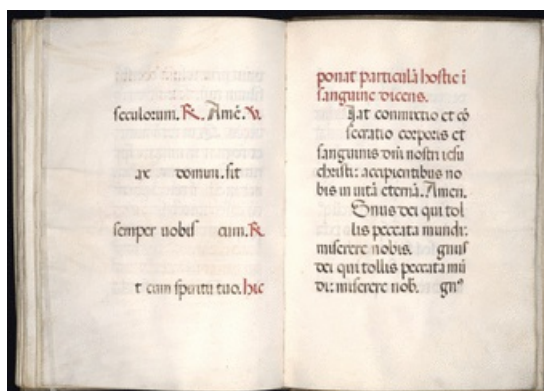 seculorum. R. Amē. V.
ax domini. sit
semper uobis cum. R
t cum spiritu tuo. hic
ponat particulā hostie ī
sanguine dicens.
iat commixtio et cō
secratio corporis et
sanguinis dn̄i nostri iesu
christi: accipientibus no
bis in uitā eternā. Amen.
Gnus dei qui tol
lis peccata mundi:
miserere nobis. gnus
dei qui tollis peccata mū
di: miserere nob. gn⁹